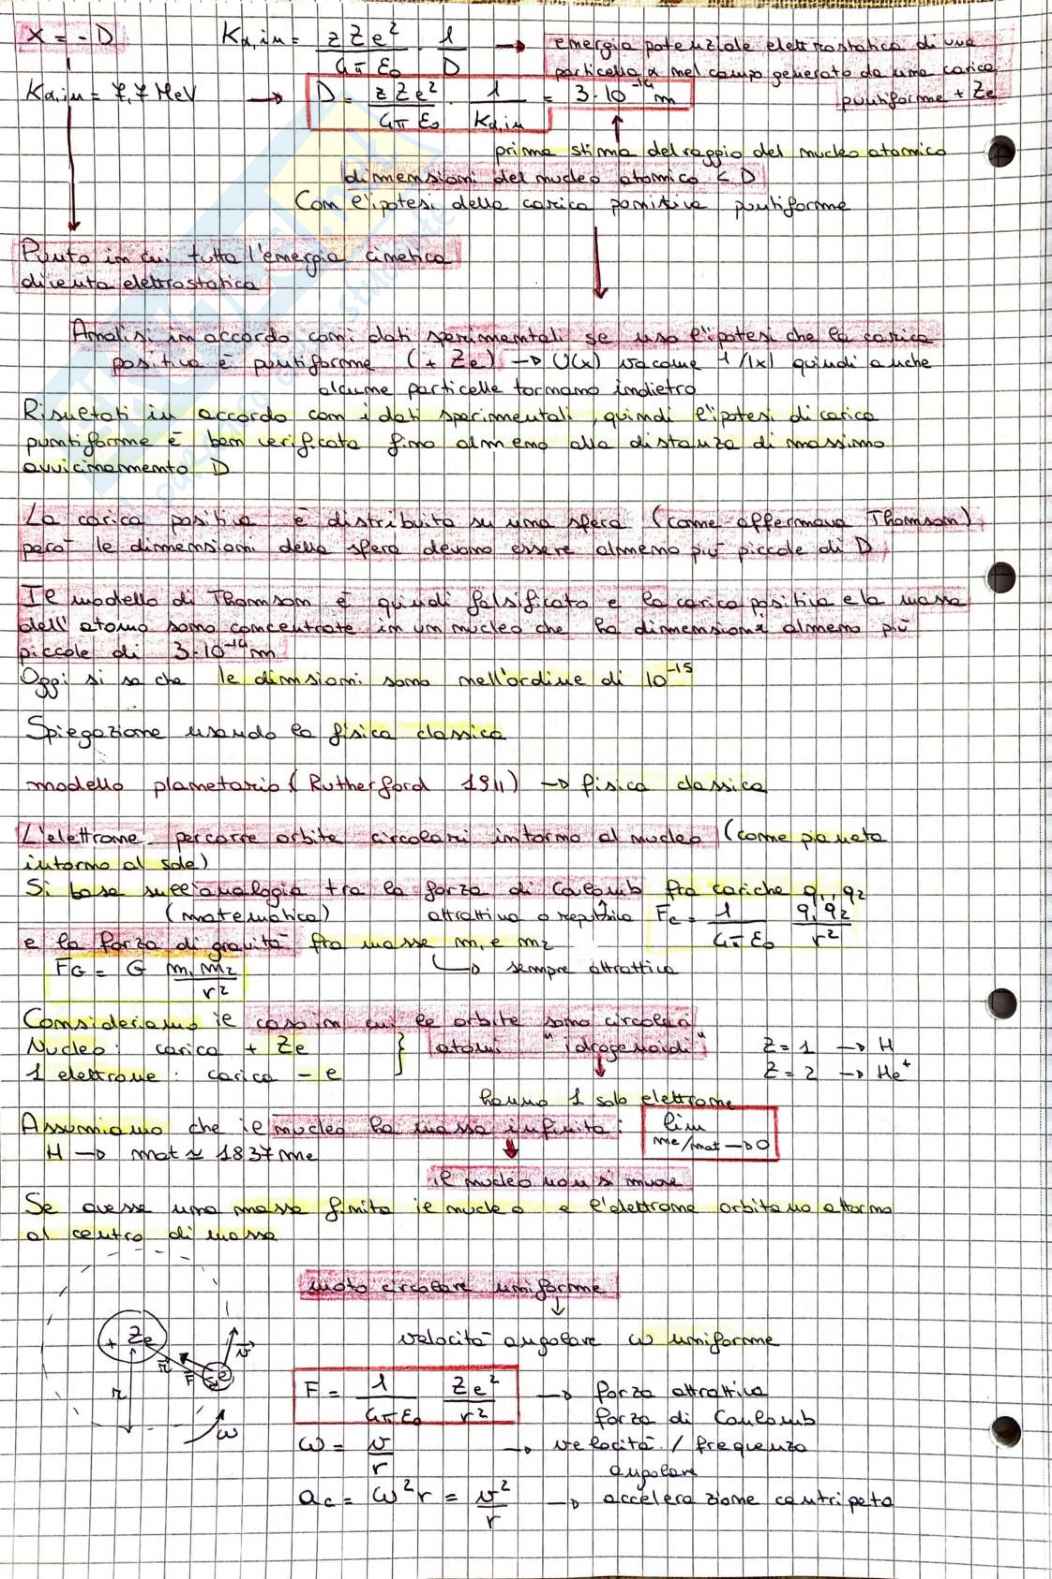 x = - D    Kα,in = z Z e² / 4π ε₀ · 1 / D → energia potenziale elettrostatica di una
particella α nel campo generato da una carica
puntiforme + Ze
Kα,in = 7,7 MeV → D = z Z e² / 4π ε₀ · 1 / Kα,in = 3·10⁻¹⁴ m
prima stima del raggio del nucleo atomico
dimensioni del nucleo atomico < D
Con l'ipotesi della carica positiva puntiforme
Punto in cui tutta l'energia cinetica
diventa elettrostatica
Analisi in accordo con i dati sperimentali se uso l'ipotesi che la carica
positiva è puntiforme (+ Ze) → U(x) va come 1/|x| quindi anche
alcune particelle tornano indietro
Risultati in accordo con i dati sperimentali, quindi l'ipotesi di carica
puntiforme è ben verificata fino almeno alla distanza di massimo
avvicinamento D
La carica positiva è distribuita su una sfera (come affermava Thomson)
però le dimensioni della sfera devono essere almeno più piccole di D
Il modello di Thomson è quindi falsificato e la carica positiva e la massa
dell'atomo sono concentrate in un nucleo che ha dimensioni almeno più
piccole di 3·10⁻¹⁴ m
Oggi si sa che le dimsioni sono nell'ordine di 10⁻¹⁵
Spiegazione usando la fisica classica
modello planetario (Rutherford 1911) → fisica classica
L'elettrone percorre orbite circolari intorno al nucleo (come pianeta
intorno al sole)
Si basa sull'analogia tra la forza di Coulomb fra cariche q₁, q₂
(matematica)    attrattiva o repulsiva    Fc = 1 / 4π ε₀ q₁ q₂ / r²
e la forza di gravità fra masse m₁ e m₂
FG = G m₁ m₂ / r²    → sempre attrattiva
Consideriamo il caso in cui le orbite sono circolari
Nucleo: carica + Ze } atomi "idrogenoidi"    Z = 1 → H
1 elettrone: carica - e    Z = 2 → He⁺
hanno 1 solo elettrone
Assumiamo che il nucleo ha massa infinita: lim me/mat → 0
H → mat ≃ 1837 me
il nucleo non si muove
Se avesse una massa finita il nucleo e l'elettrone orbitano attorno
al centro di massa
moto circolare uniforme
velocità angolare ω uniforme
+ Ze    r    F    e    v    r    ω
F = 1 / 4π ε₀ Ze² / r² → forza attrattiva
forza di Coulomb
ω = v / r → velocità / frequenza
angolare
ac = ω² r = v² / r → accelerazione centripeta